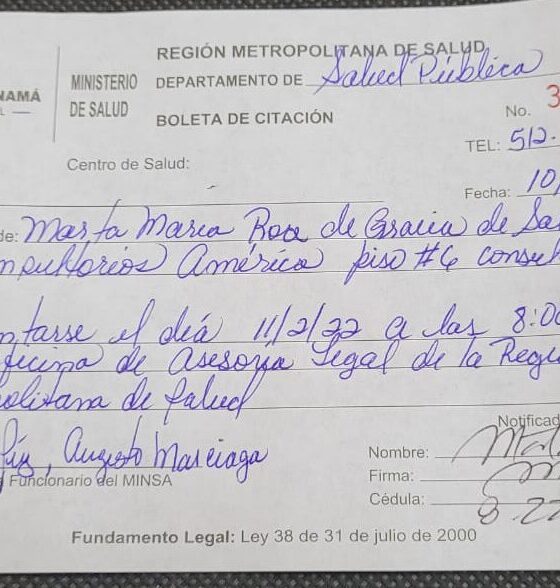 REGIÓN METROPOLITANA DE SALUD
NAMÁ
MINISTERIO DE SALUD
DEPARTAMENTO DE Salud Pública
BOLETA DE CITACIÓN
No. 3
TEL: 512.
Centro de Salud:
Fecha: 10
de: Marta Maria Roa de Gracia de Sa
América piso #6 consul
el día 11/2/22 a las 8:00
de Asesoria Legal de la Regi
politana de Salud
Augusto Marciaga
Funcionario del MINSA
Notificad
Nombre:
Firma:
Cédula: 8-22
Fundamento Legal: Ley 38 de 31 de julio de 2000